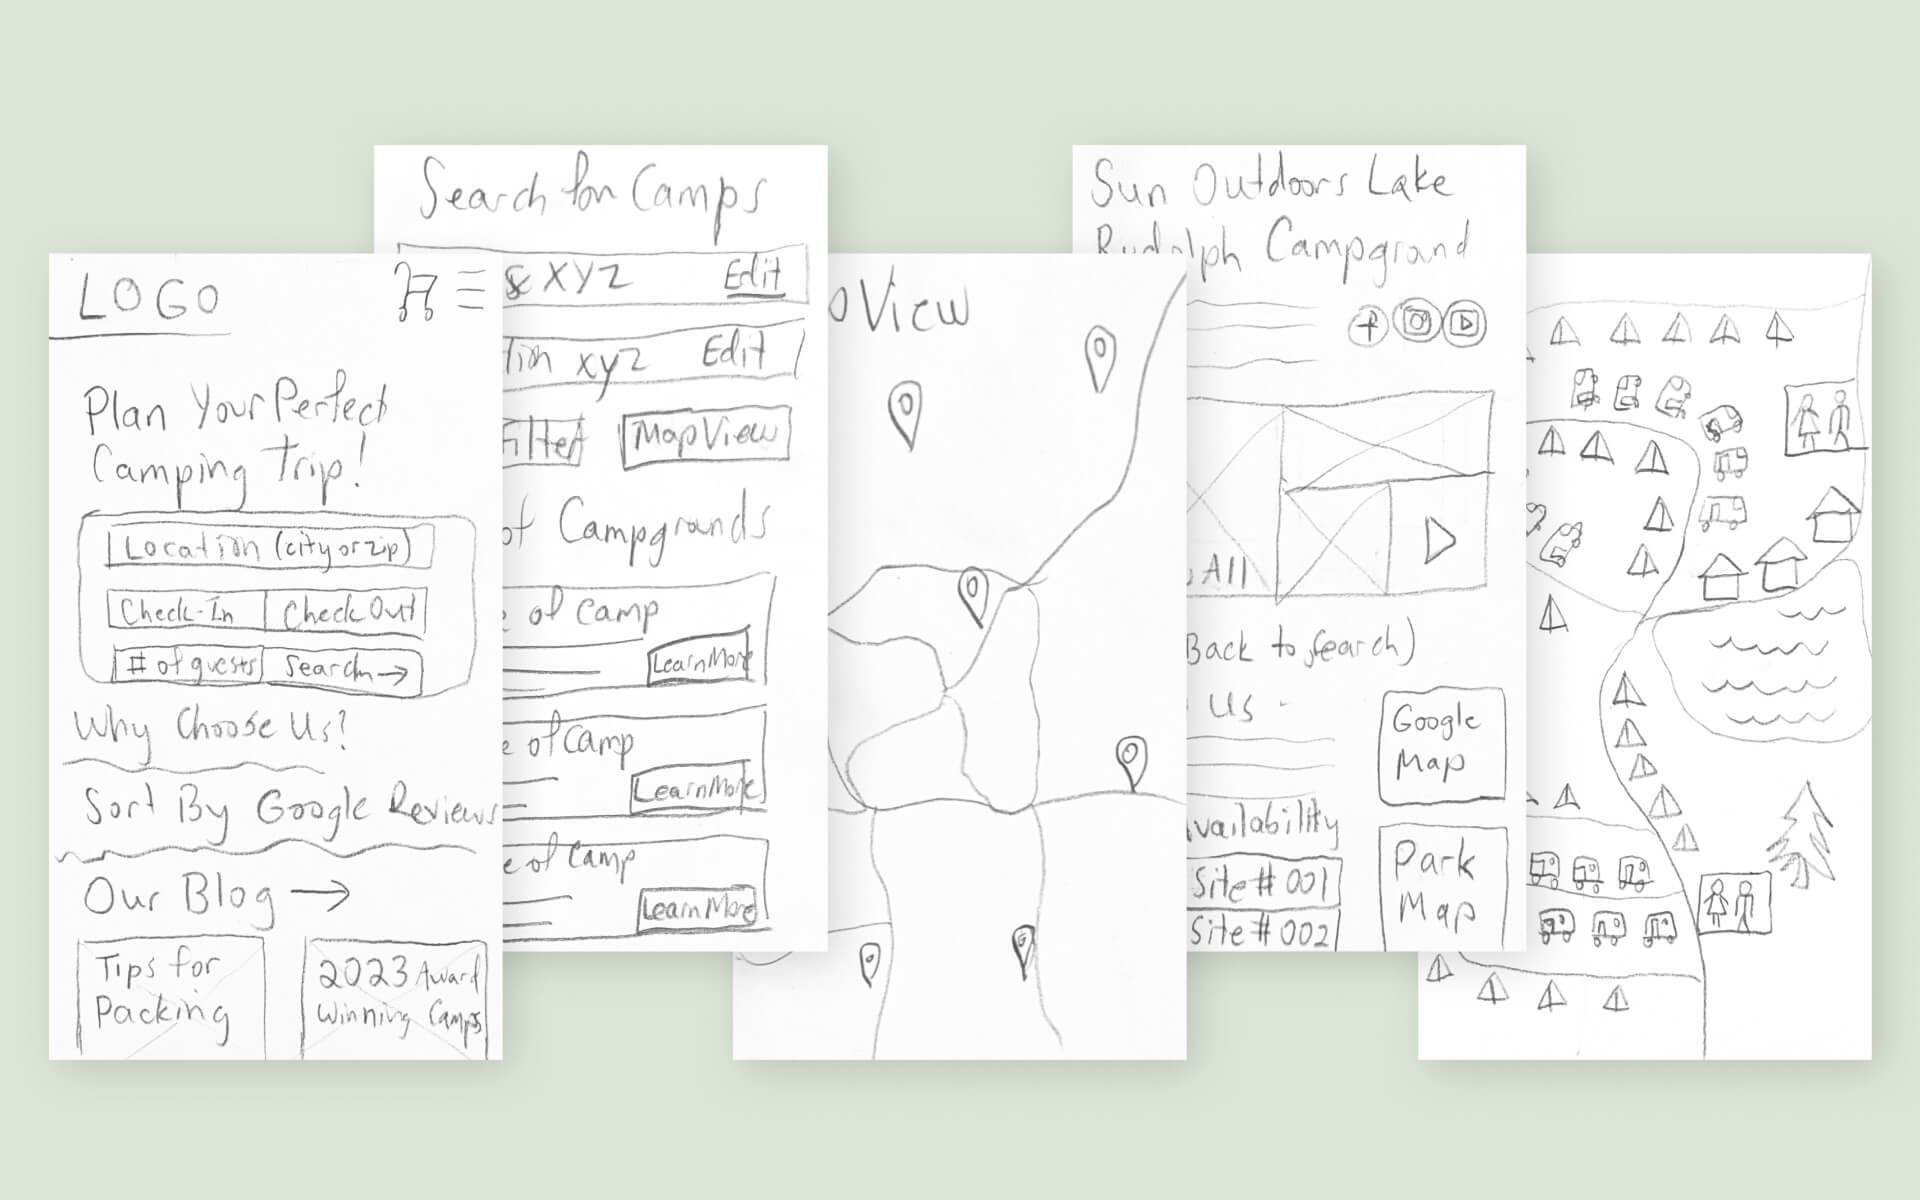 LOGO
Plan Your Perfect
Camping Trip!
Location (city or zip)
Check-In
Check Out
# of guests
Search →
Why Choose Us?
Sort By Google Reviews
Our Blog →
Tips for
Packing
2023 Award
Winning Camps
Search for Camps
& XYZ
Edit
tion xyz
Edit
Filter
Map View
of Campgrounds
e of Camp
Learn More
e of Camp
Learn More
e of Camp
Learn More
o View
Sun Outdoors Lake
Rudolph Campground
All
Back to Search)
Us
Google
Map
Availability
Site # 001
Site # 002
Park
Map